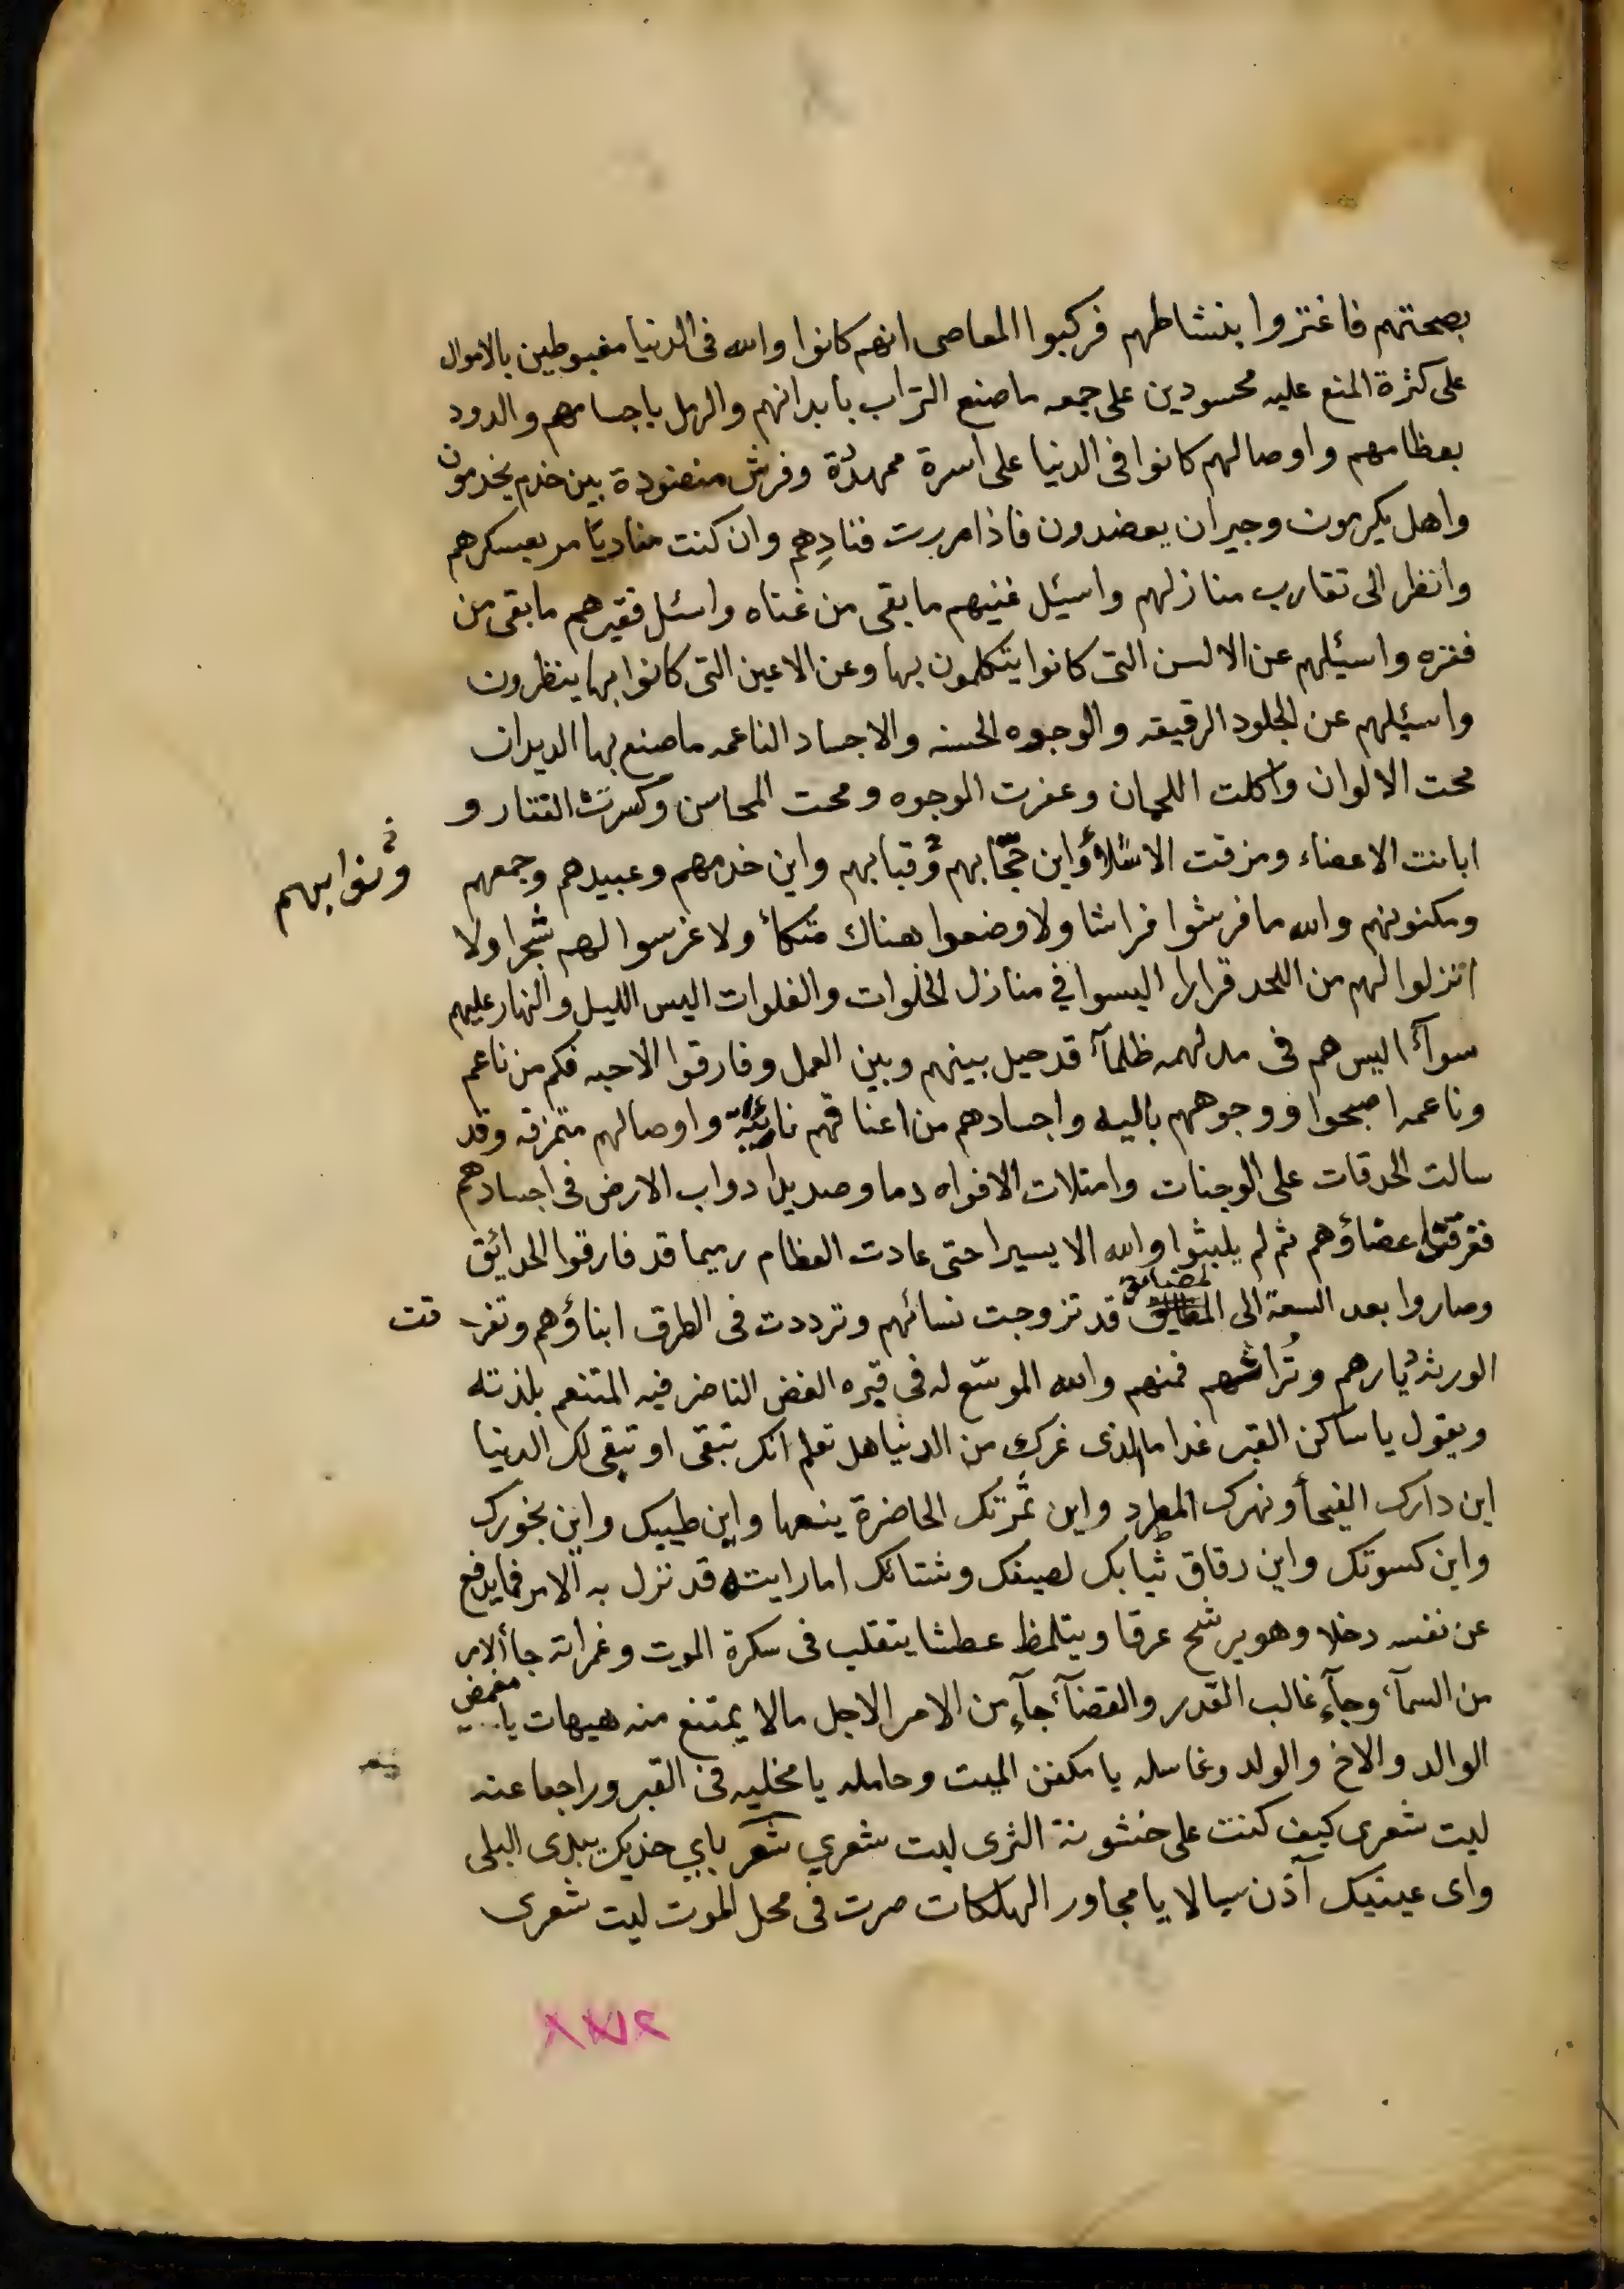 بصحتهم فاغتروا بنشاطهم فركبوا المعاصى انهم كانوا والله فى الدنيا مغبوطين بالاموال
على كثرة المنع عليه محسودين على جمعه ما صنع التراب بابدانهم والرمل باجسامهم والدود
بعظامهم واوصالهم كانوا فى الدنيا على اسرة ممهدة وفرش منضودة بين خدم يخدمون
واهل يكرمون وجيران يعضدون فاذا مررت فنادِهم وان كنت مناديا مر بعسكرهم
وانظر الى تقارب منازلهم واسئيل غنيهم ما بقى من غناه واسئل فقيرهم ما بقى من
فقره واسئيلهم عن الالسن التى كانوا يتكلمون بها وعن الاعين التى كانوا بها ينظرون
واسئيلهم عن الجلود الرقيقه والوجوه الحسنه والاجساد الناعمه ما صنع بها الديدان
محت الالوان واكلت اللحمان وعفرت الوجوه ومحت المحاسن وكسرت الفقار و
ابانت الاعضاء ومزقت الاشلاؤ واين حجّابهم وقبابهم واين خدمهم وعبيدهم وجمعهم
ونوابهم
ومكنونهم والله ما فرشوا فراشا ولا وضعوا هناك متكأ ولا غرسوا لهم شجرا ولا
انزلوا لهم من اللحد قرارا اليسوا في منازل الخلوات والفلوات اليس الليل والنهار عليهم
سوآء اليس هم فى مدلهمه ظلمآء قد حيل بينهم وبين العمل وفارقوا الاحبه فكم من ناعم
وناعمه اصبحوا ووجوههم باليه واجسادهم من اعناقهم نائية واوصالهم متمزقه وقد
سالت الحدقات على الوجنات وامتلات الافواه دما وصديدا دواب الارض فى اجسادهم
ففرقت اعضاؤهم ثم لم يلبثوا والله الا يسيرا حتى عادت العظام رميما قد فارقوا الحدائق
وصاروا بعد السعة الى المضائق قد تزوجت نسائهم وترددت فى الطرق ابناؤهم وتفر قت
الورثة ديارهم وتُراثهم فمنهم والله الموسّع له فى قبره الغض الناضر فيه المتنعم بلذته
ويقول يا ساكن القبر غدا ما الذى غرك من الدنيا هل تعلم انك تبقى او تبقى لك الدنيا
اين دارك الفيحأ ونهرك المطرد واين ثمرتك الحاضرة ينعها واين طيبك واين بخورك
واين كسوتك واين رقاق ثيابك لصيفك وشتائك اما رايته قد نزل به الامر فما يدفع
عن نفسه دخلا وهو يرشح عرقا ويتلمظ عطشا يتقلب فى سكرة الموت وغمراته جأ الامر
من السمآء وجآء غالب القدر والقضآء جآء من الامر الاجل ما لا يمتنع منه هيهات يا مغمض
الوالد والاخ والولد وغاسله يا مكفن الميت وحامله يا مخليه فى القبر وراجعا عنه
ليت شعرى كيف كنت على خشونة الثرى ليت شعري شعر باي خديك يبدى البلى
واى عينيك آذن سيالا يا مجاور الهلكات صرت فى محل الموت ليت شعرى